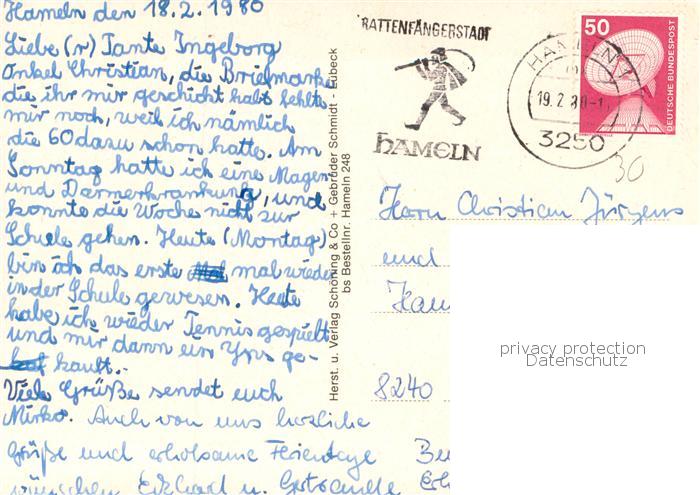 Hameln den 18.2.1980
Liebe (r) Tante Ingeborg
Onkel Christian, die Briefmarke
die ihr mir geschickt habt fehlte
mir noch, weil ich nämlich
die 60 dazu schon hatte. Am
Sonntag hatte ich eine Magen
und Darmerkrankung, und
konnte die Woche nicht zur
Schule gehen. Heute (Montag)
bin ich das erste mal wieder
in der Schule gewesen. Heute
habe ich wieder Tennis gespielt
und mir dann ein Yps ge-
kauft.
Viele Grüße sendet euch
Mirko. Auch von uns herzliche
Grüße und erholsame Feientage
wünschen Eckhard u.
Herst. u. Verlag Schöning & Co + Gebrüder Schmidt - Lübeck
bs Bestellnr. Hameln 248
RATTENFÄNGERSTADT
HAMELN
HAMELN 1
19.2.80-1
3250
50
DEUTSCHE BUNDESPOST
30
Herrn Christian Jürgens
und
8240
privacy protection
Datenschutz